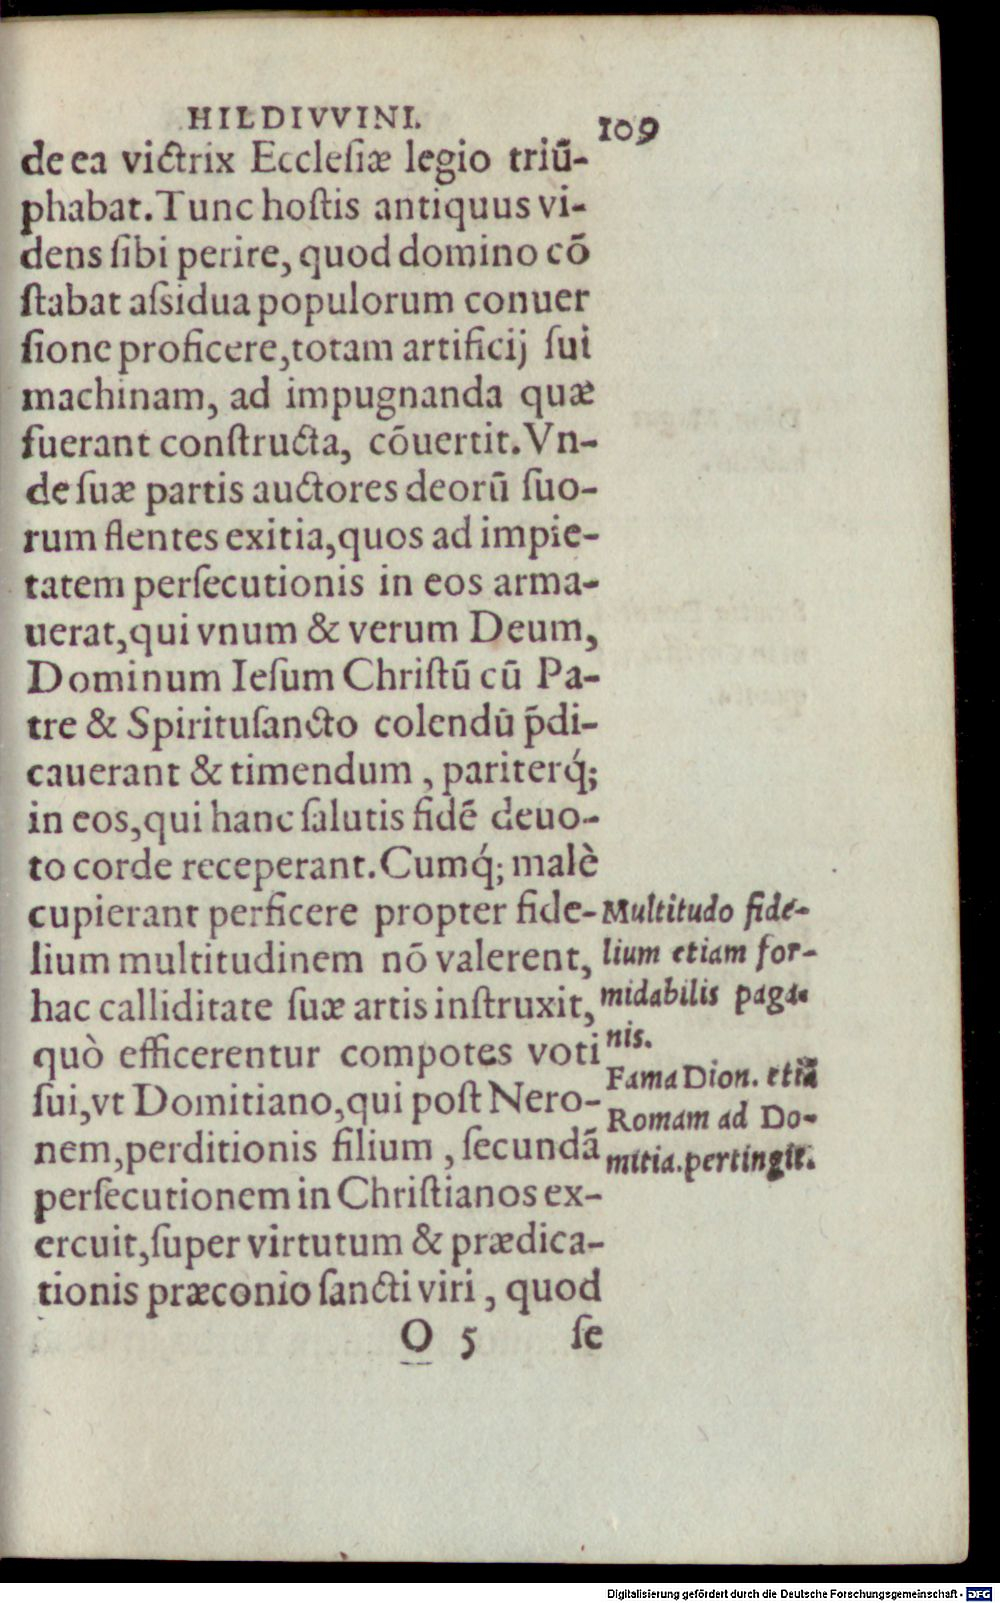 HILDIVVINI. 109
de ea victrix Eccleſiæ legio triū-
phabat. Tunc hoſtis antiquus vi-
dens ſibi perire, quod domino cō
ſtabat aſsidua populorum conuer
ſione proficere, totam artificij ſui
machinam, ad impugnanda quæ
fuerant conſtructa, cōuertit. Vn-
de ſuæ partis auctores deorū ſuo-
rum flentes exitia, quos ad impie-
tatem perſecutionis in eos arma-
uerat, qui vnum & verum Deum,
Dominum Ieſum Chriſtū cū Pa-
tre & Spirituſancto colendū p̄di-
cauerant & timendum, pariterq́;
in eos, qui hanc ſalutis fidē deuo-
to corde receperant. Cumq́; malè
cupierant perficere propter fide-
lium multitudinem nō valerent,
hac calliditate ſuæ artis inſtruxit,
quò efficerentur compotes voti
ſui, vt Domitiano, qui poſt Nero-
nem, perditionis filium, ſecundā
perſecutionem in Chriſtianos ex-
ercuit, ſuper virtutum & prædica-
tionis præconio ſancti viri, quod
O 5 ſe
Multitudo fide-
lium etiam for-
midabilis paga-
nis.
Fama Dion. etiā
Romam ad Do-
mitia. pertingit.
Digitalisierung gefördert durch die Deutsche Forschungsgemeinschaft - DFG